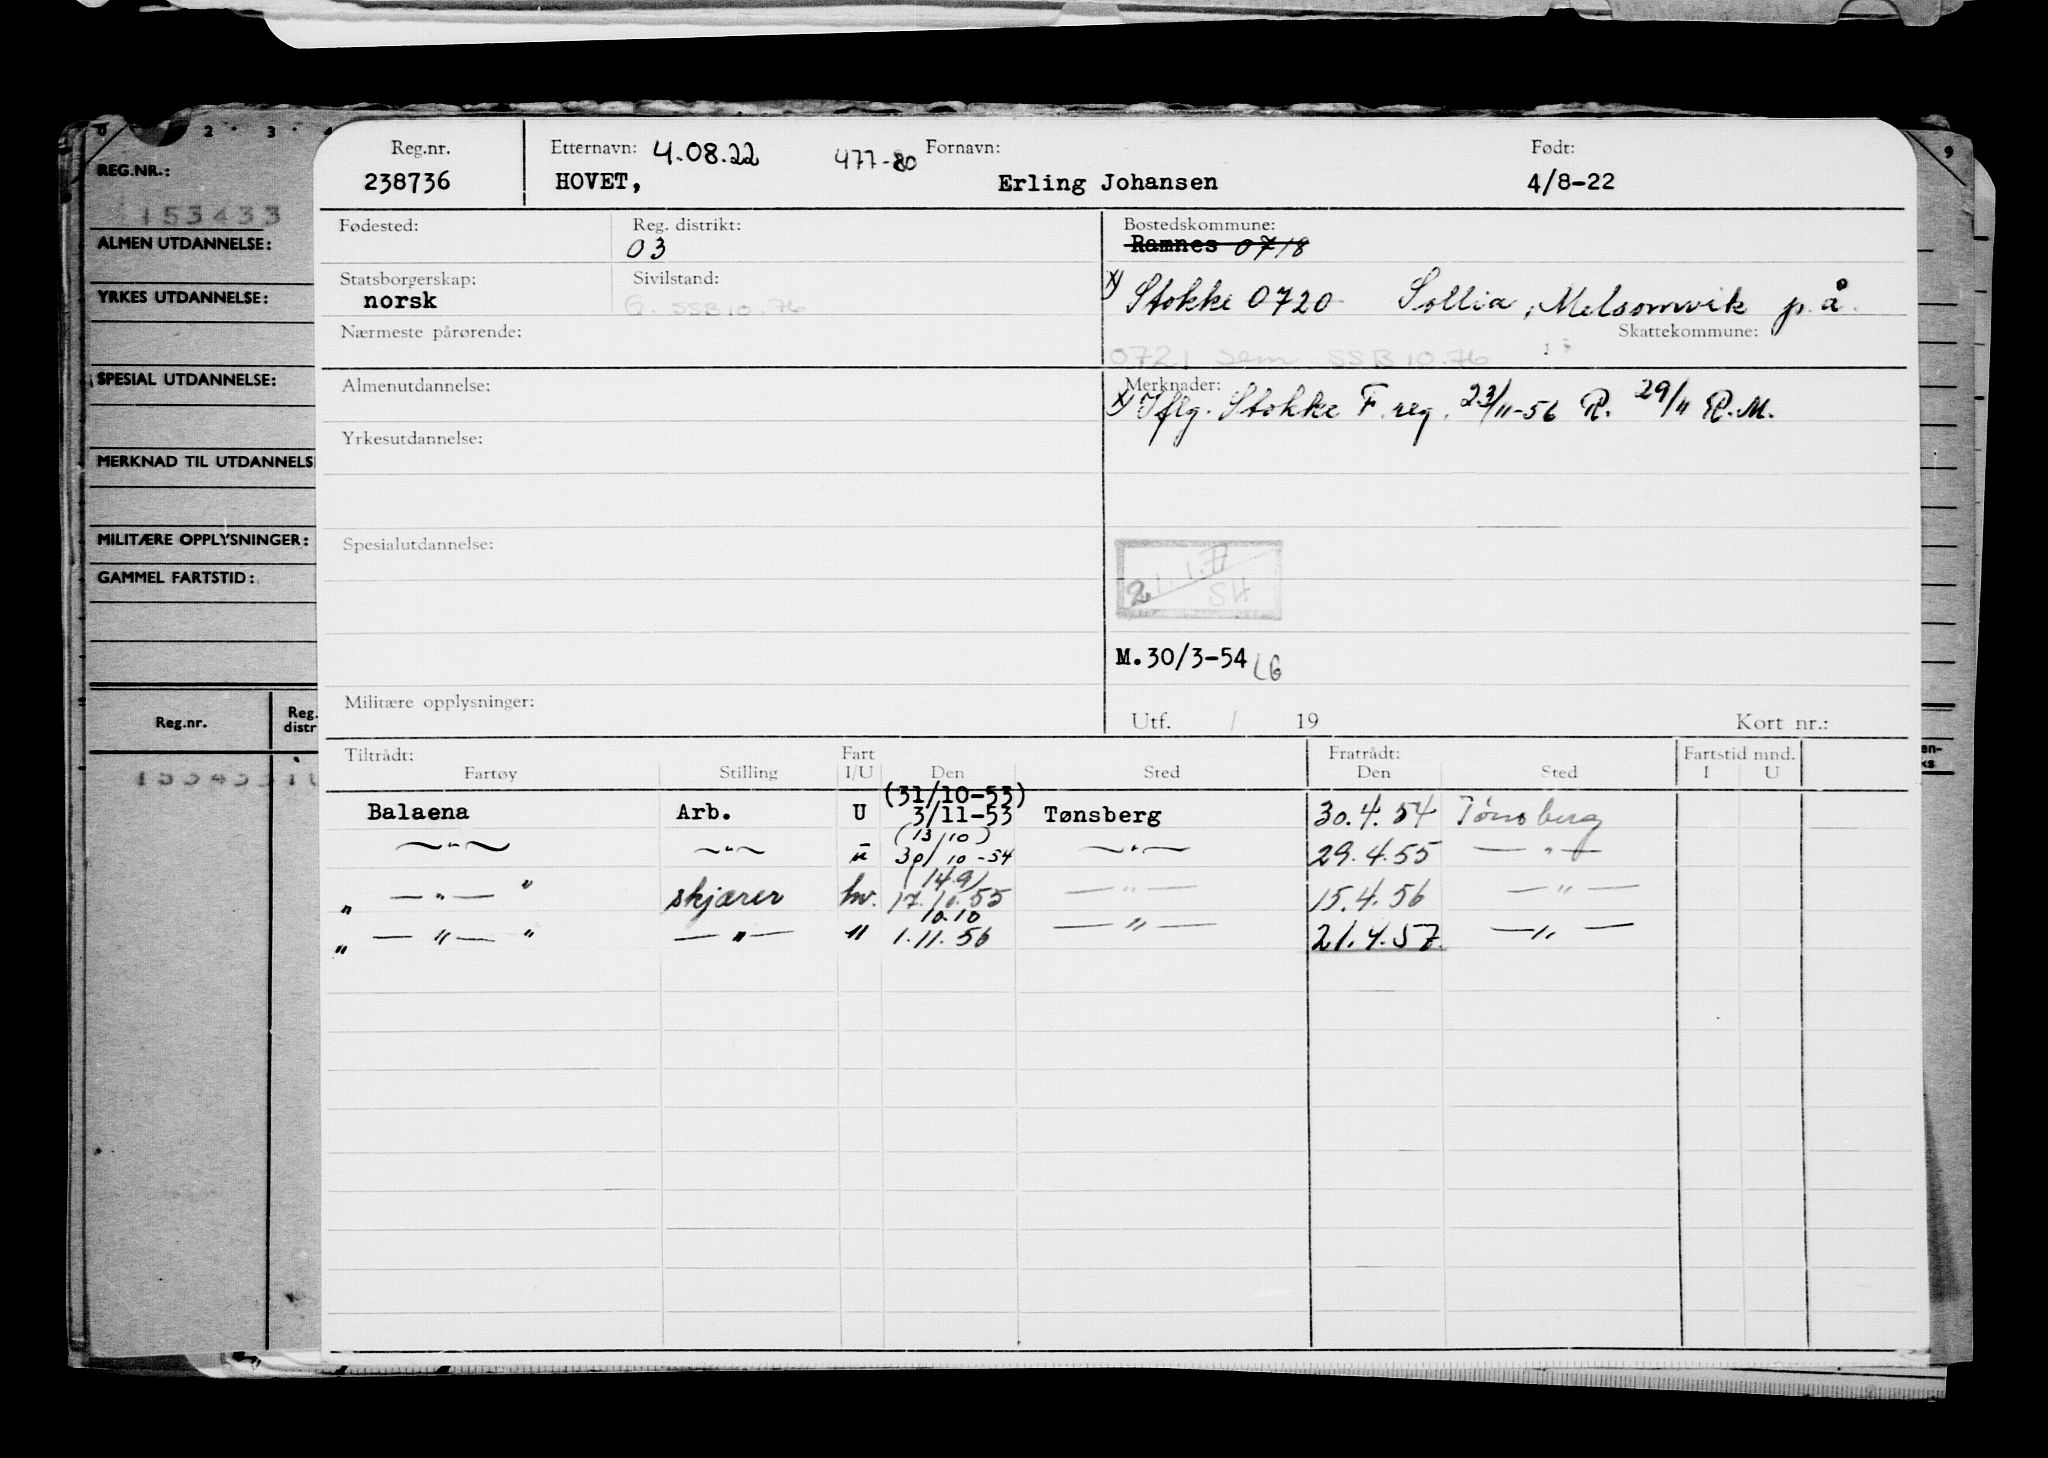 0 2 · 3 · 4
9
REG.NR.:
153433
ALMEN UTDANNELSE:
YRKES UTDANNELSE:
SPESIAL UTDANNELSE:
MERKNAD TIL UTDANNELS
MILITÆRE OPPLYSNINGER:
GAMMEL FARTSTID:
Reg.nr.
Reg.
distr
153433
Reg.nr. Etternavn: 4.08.22 477-80 Fornavn: Født:
238736 HOVET, Erling Johansen 4/8-22
Fødested: Reg. distrikt: Bostedskommune:
03 Ramnes 0718
Statsborgerskap: Sivilstand:
norsk G. SSB 10.76 x) Stokke 0720 Sollia, Melsomvik p.å.
Nærmeste pårørende: Skattekommune:
0721 Sem SSB 10.76
Almenutdannelse: Merknader:
x) Iflg. Stokke F.reg. 23/11-56 R. 29/11 R.M.
Yrkesutdannelse:
Spesialutdannelse:
SH
M.30/3-54 LG
Militære opplysninger: Utf. / 19 Kort nr.:
Tiltrådt: Fart Fratrådt: Fartstid mnd.
Fartøy Stilling I/U Den Sted Den Sted I U
(31/10-53)
Balaena Arb. U 3/11-53 Tønsberg 30.4.54 Tønsberg
(13/10)
— " — — " — u 30/10-54 — " — 29.4.55 — " —
(14.9)
" — " — " skjærer hv. 17.10.55 — " — 15.4.56 — " —
10.10
" — " — " — " — " 1.11.56 — " — 21.4.57 — " —